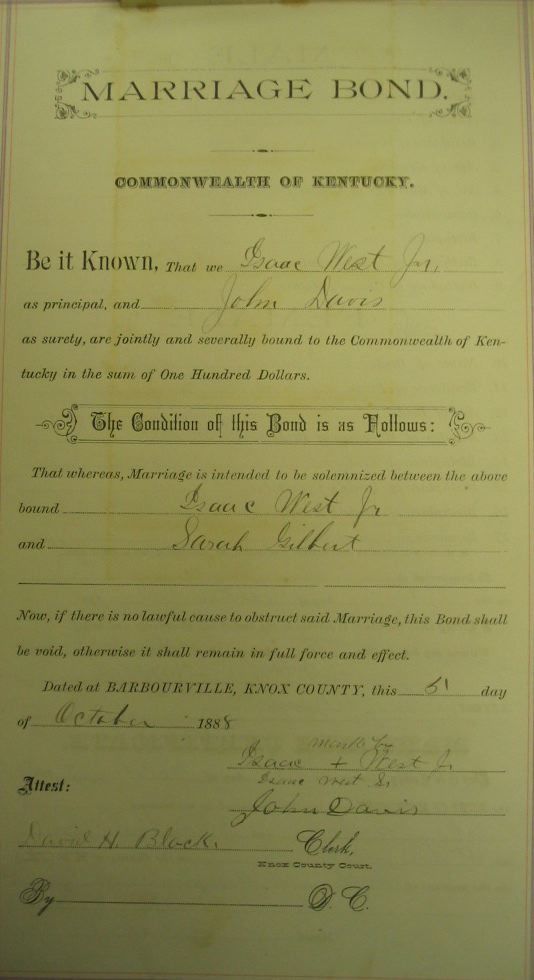 MARRIAGE BOND.
COMMONWEALTH OF KENTUCKY.
Be it Known, That we Isaac West Jr,
as principal, and John Davis
as surety, are jointly and severally bound to the Commonwealth of Ken-
tucky in the sum of One Hundred Dollars.
The Condition of this Bond is as Follows:
That whereas, Marriage is intended to be solemnized between the above
bound Isaac West Jr
and Sarah Gilbert
Now, if there is no lawful cause to obstruct said Marriage, this Bond shall
be void, otherwise it shall remain in full force and effect.
Dated at BARBOURVILLE, KNOX COUNTY, this 5 day
of October 1888
mark by
Isaac + West Jr
Isaac West Sr
Attest:
John Davis
David H. Black. Clerk,
Knox County Court.
By D. C.